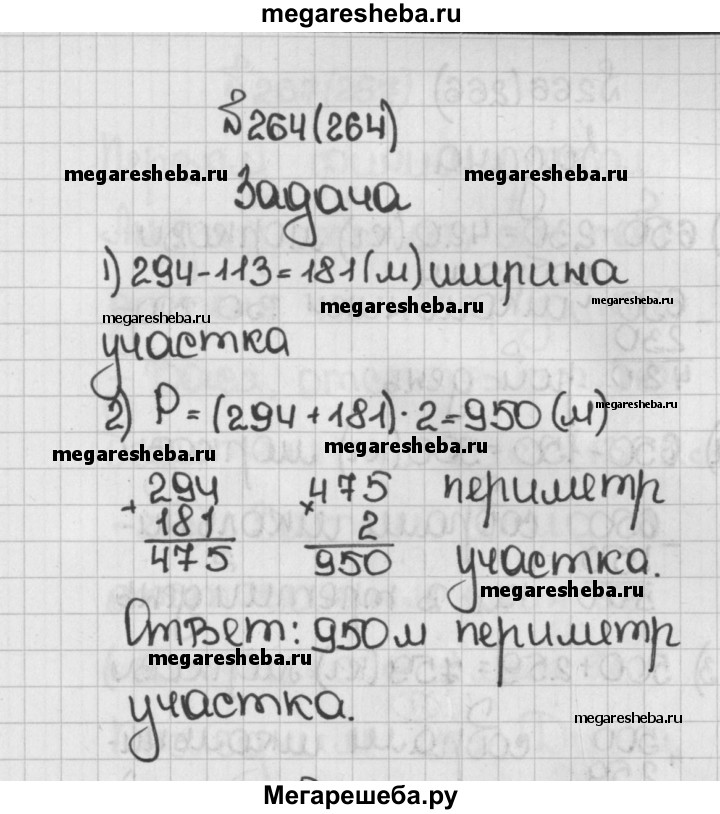 megaresheba.ru
№264(264)
megaresheba.ru megaresheba.ru
Задача
1) 294-113=181(м) ширина
megaresheba.ru
megaresheba.ru
megaresheba.ru
участка
2) P=(294+181)·2=950(м)
megaresheba.ru
megaresheba.ru
megaresheba.ru
+ 294 × 475 периметр
181 2
475 950 участка.
megaresheba.ru
Ответ: 950м периметр
megaresheba.ru
участка.
megaresheba.ru
Мегарешеба.ру